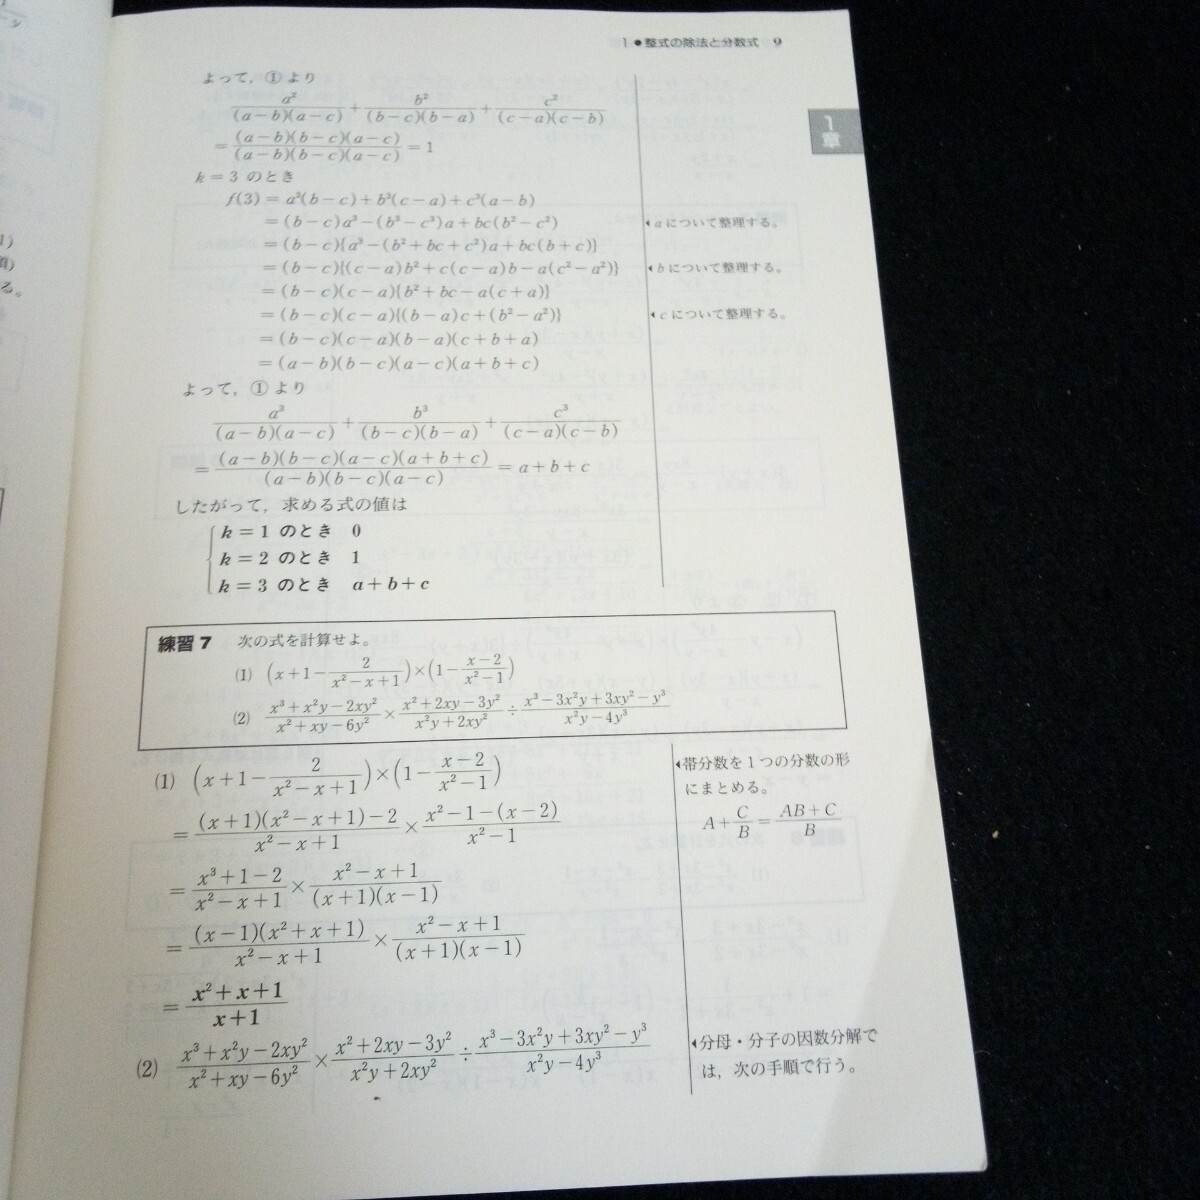 1●整式の除法と分数式 9
1章
よって，①より
a²/((a−b)(a−c)) + b²/((b−c)(b−a)) + c²/((c−a)(c−b))
= ((a−b)(b−c)(a−c))/((a−b)(b−c)(a−c)) = 1
k=3 のとき
f(3)=a³(b−c)+b³(c−a)+c³(a−b)
=(b−c)a³−(b³−c³)a+bc(b²−c²)
◂aについて整理する。
=(b−c){a³−(b²+bc+c²)a+bc(b+c)}
=(b−c){(c−a)b²+c(c−a)b−a(c²−a²)}
◂bについて整理する。
=(b−c)(c−a){b²+bc−a(c+a)}
=(b−c)(c−a){(b−a)c+(b²−a²)}
◂cについて整理する。
=(b−c)(c−a)(b−a)(c+b+a)
=(a−b)(b−c)(a−c)(a+b+c)
よって，①より
a³/((a−b)(a−c)) + b³/((b−c)(b−a)) + c³/((c−a)(c−b))
= ((a−b)(b−c)(a−c)(a+b+c))/((a−b)(b−c)(a−c)) = a+b+c
したがって，求める式の値は
k=1 のとき 0
k=2 のとき 1
k=3 のとき a+b+c
練習7 次の式を計算せよ。
(1) (x+1−2/(x²−x+1))×(1−(x−2)/(x²−1))
(2) (x³+x²y−2xy²)/(x²+xy−6y²) × (x²+2xy−3y²)/(x²y+2xy²) ÷ (x³−3x²y+3xy²−y³)/(x²y−4y³)
(1) (x+1−2/(x²−x+1))×(1−(x−2)/(x²−1))
= ((x+1)(x²−x+1)−2)/(x²−x+1) × (x²−1−(x−2))/(x²−1)
= (x³+1−2)/(x²−x+1) × (x²−x+1)/((x+1)(x−1))
= ((x−1)(x²+x+1))/(x²−x+1) × (x²−x+1)/((x+1)(x−1))
= (x²+x+1)/(x+1)
◂帯分数を1つの分数の形
にまとめる。
A+C/B=(AB+C)/B
(2) (x³+x²y−2xy²)/(x²+xy−6y²) × (x²+2xy−3y²)/(x²y+2xy²) ÷ (x³−3x²y+3xy²−y³)/(x²y−4y³)
◂分母・分子の因数分解で
は，次の手順で行う。